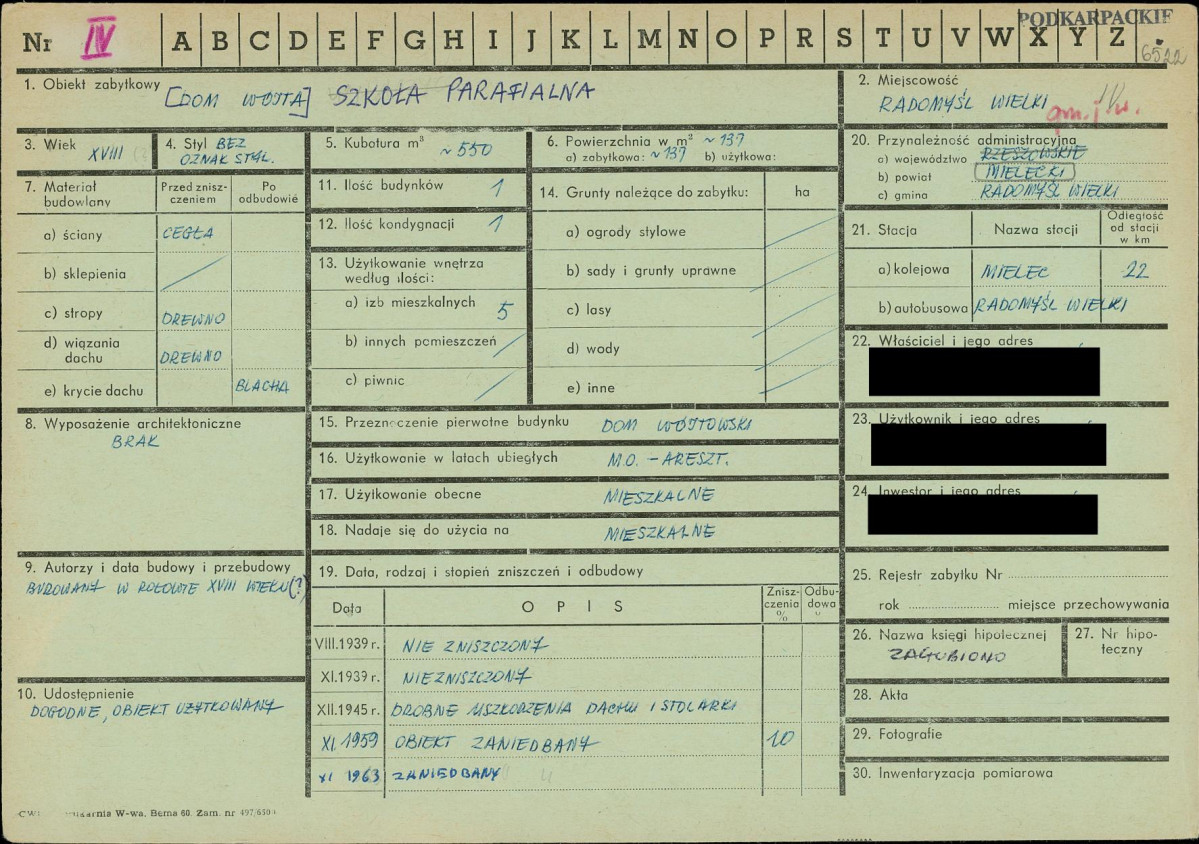 PODKARPACKIE
Nr IV A B C D E F G H I J K L M N O P R S T U V W X Y Z
6522
1. Obiekt zabytkowy [DOM WÓJTA] SZKOŁA PARAFIALNA
2. Miejscowość
RADOMYŚL WIELKI
gm. j. w.
3. Wiek XVIII (?)
4. Styl BEZ
OZNAK STYL.
5. Kubatura m³ ~550
6. Powierzchnia w m² ~137
a) zabytkowa: ~137 b) użytkowa:
20. Przynależność administracyjna
a) województwo RZESZOWSKIE
b) powiat MIELECKI
c) gmina RADOMYŚL WIELKI
7. Materiał budowlany
Przed zniszczeniem
Po odbudowie
a) ściany CEGŁA
b) sklepienia
c) stropy DREWNO
d) wiązania dachu DREWNO
e) krycie dachu BLACHA
8. Wyposażenie architektoniczne
BRAK
9. Autorzy i data budowy i przebudowy
BUDOWANY W POŁOWIE XVIII WIEKU (?)
10. Udostępnienie
DOGODNE, OBIEKT UŻYTKOWANY
11. Ilość budynków 1
12. Ilość kondygnacji 1
13. Użytkowanie wnętrza
według ilości:
a) izb mieszkalnych 5
b) innych pomieszczeń
c) piwnic
14. Grunty należące do zabytku: ha
a) ogrody stylowe
b) sady i grunty uprawne
c) lasy
d) wody
e) inne
15. Przeznaczenie pierwotne budynku DOM WÓJTOWSKI
16. Użytkowanie w latach ubiegłych M.O. – ARESZT.
17. Użytkowanie obecne MIESZKALNE
18. Nadaje się do użycia na MIESZKALNE
19. Data, rodzaj i stopień zniszczeń i odbudowy
Data OPIS Zniszczenia % Odbudowa
VIII.1939 r. NIE ZNISZCZONY
XI.1939 r. NIEZNISZCZONY
XII.1945 r. DROBNE USZKODZENIA DACHU I STOLARKI
XI 1959 OBIEKT ZANIEDBANY 10
XI 1963 ZANIEDBANY
21. Stacja Nazwa stacji Odległość od stacji w km
a) kolejowa MIELEC 22
b) autobusowa RADOMYŚL WIELKI
22. Właściciel i jego adres
23. Użytkownik i jego adres
24. Inwestor i jego adres
25. Rejestr zabytku Nr
rok miejsce przechowywania
26. Nazwa księgi hipotecznej
ZAGUBIONO
27. Nr hipoteczny
28. Akta
29. Fotografie
30. Inwentaryzacja pomiarowa
W-wa, Bema 60. Zam. nr 497/650